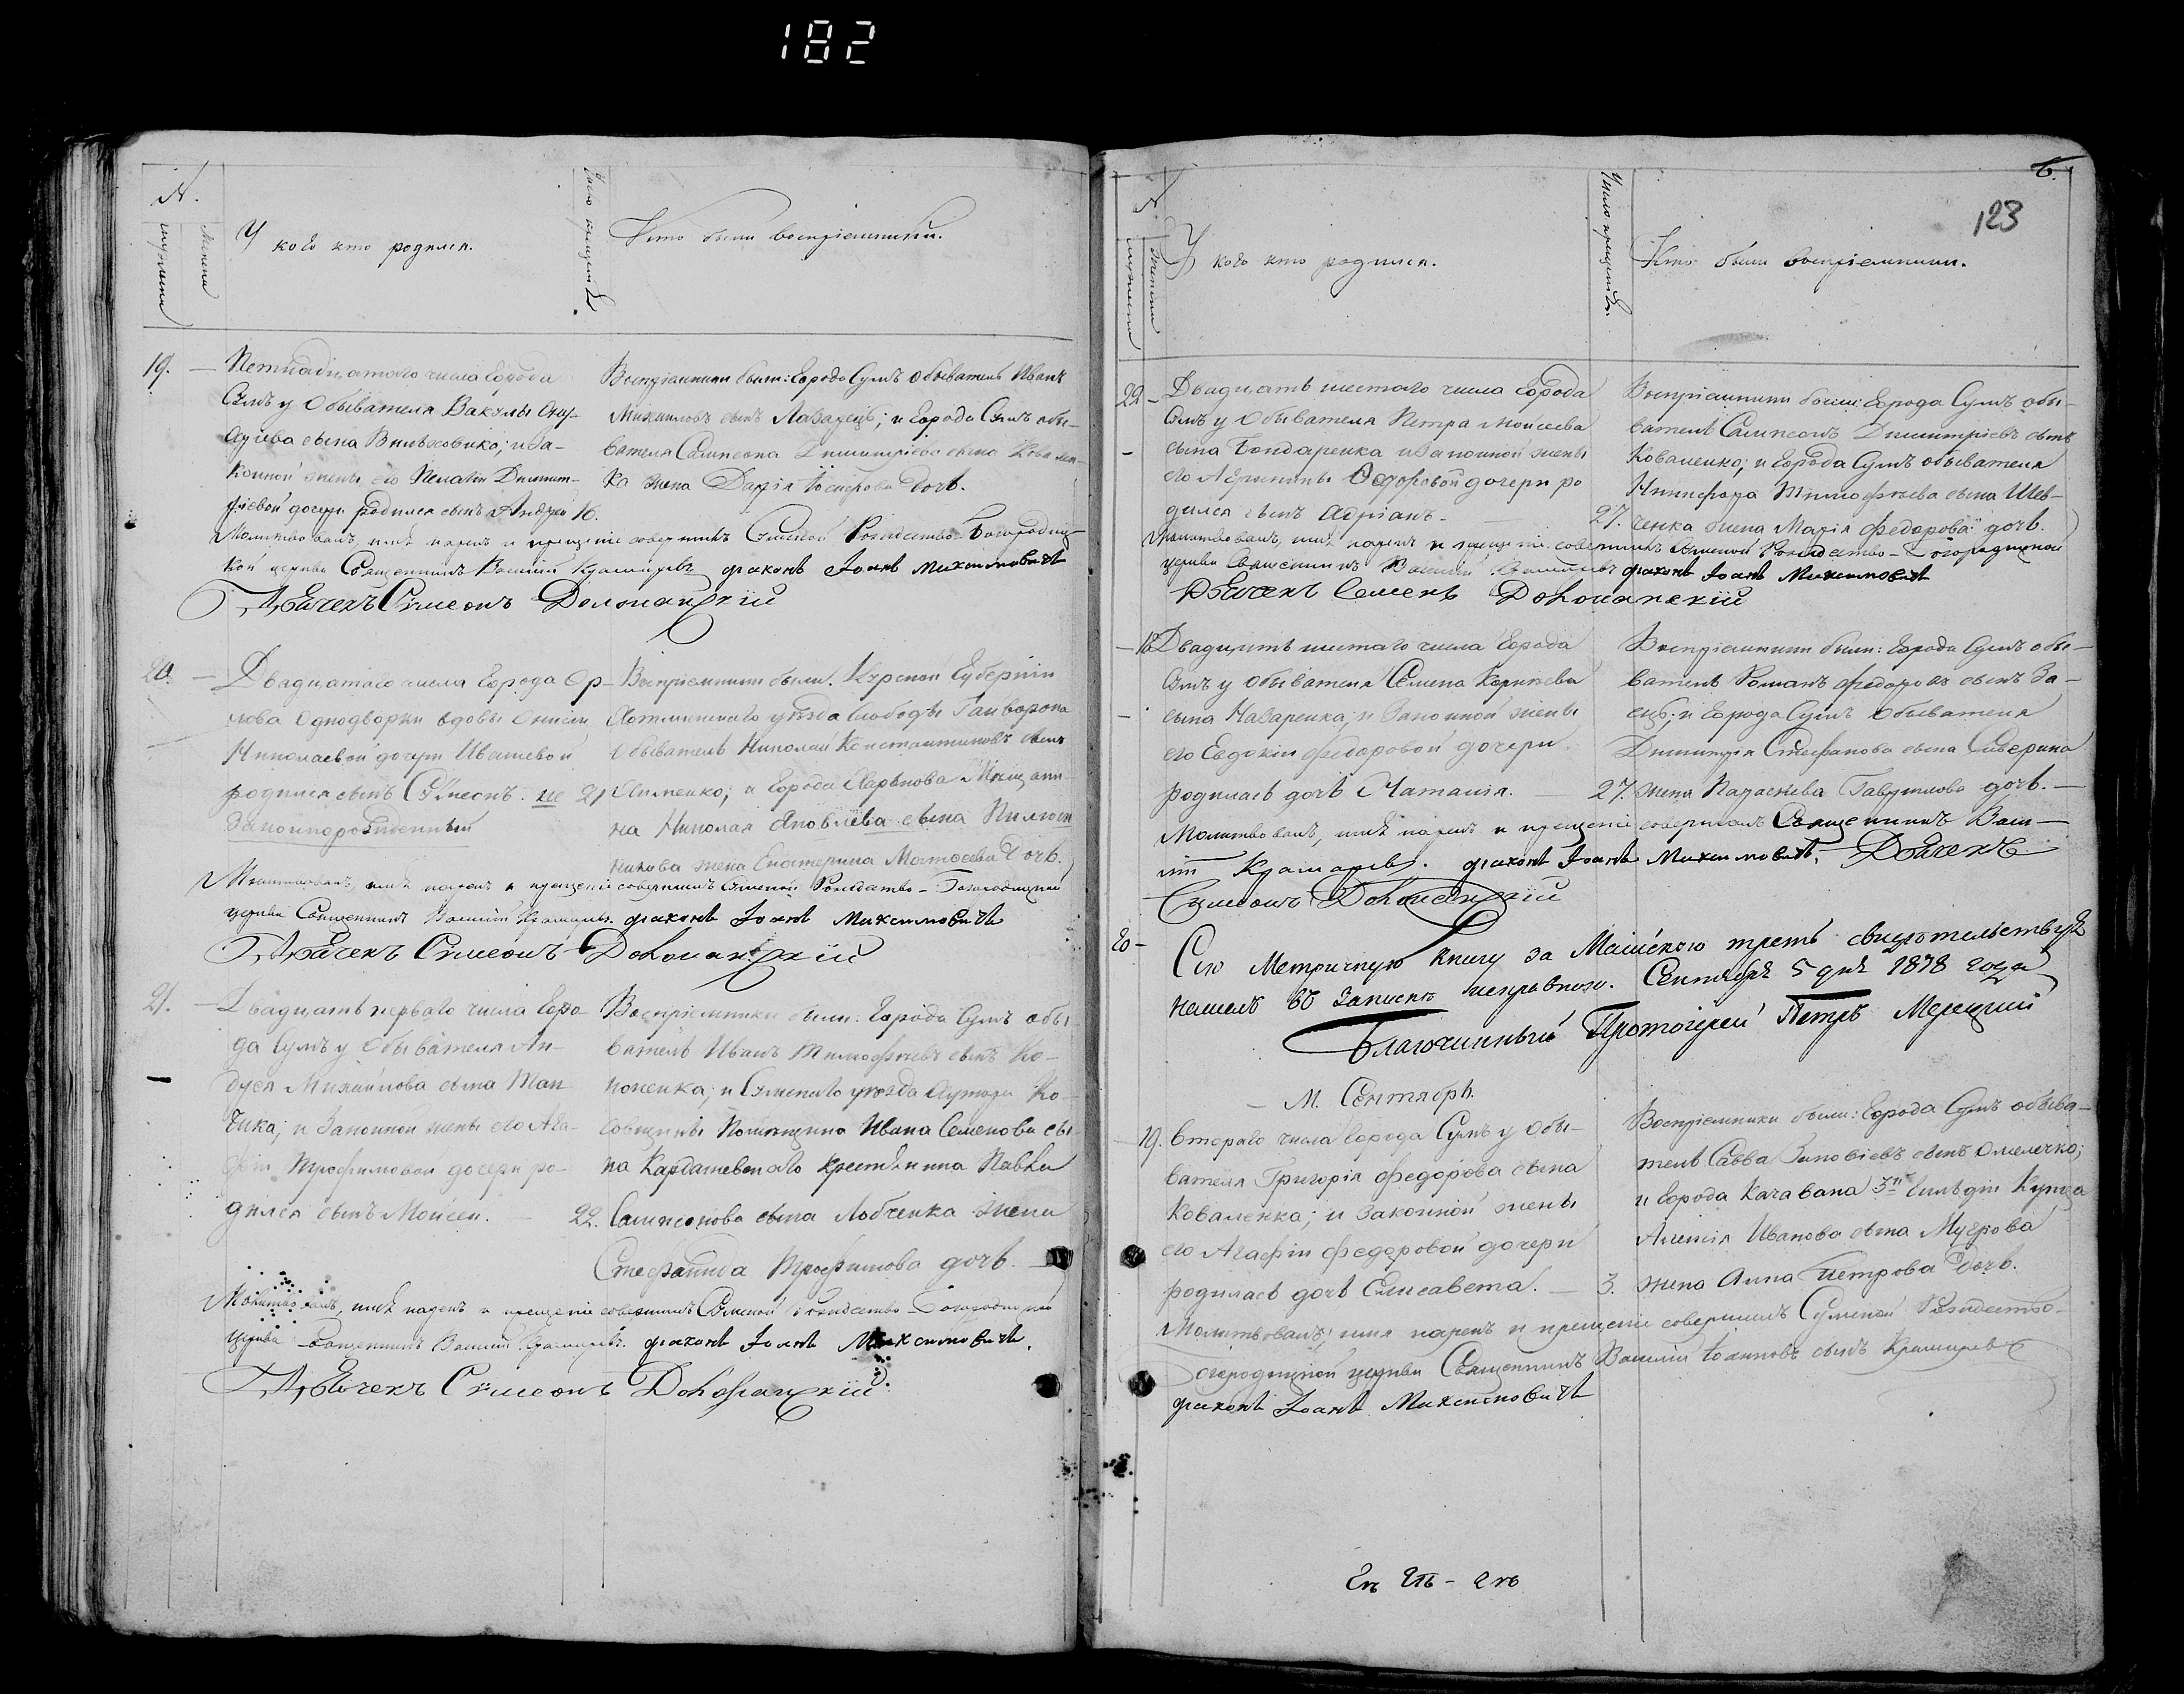 182
№.
мужеска
женска
У кого кто родился.
Число крещенія.
Кто были воспріемники.
19.
Петнадцатого числа Города
Сумъ у Обывателя Вакулы
сына
и за-
конной жены его Пелагіи Димит-
ріевой дочери родился сынъ Андрей 16.
Воспріемники были: Города Сумъ Обыватель Иванъ
Михайловъ сынъ Лазарецъ; и Города Сумъ обы-
вателя Сампсона Димитріева сына Ковален-
ка жена Дарія дочь.
Молитвовалъ, имя нарекъ и крещеніе совершилъ Сумской Рождество-Богородиц-
кой церкви Священникъ Василій Крамаревъ діаконъ Іоанъ Максимовичъ
Дьячекъ Сѵмеонъ
20.
Двадцатого числа Города Ор-
лова Однодворки вдовы
Николаевой дочери Ивашевой
родился сынъ Сѵмеонъ. не 21
Законнорожденный
Воспріемники были. Курской Губерніи
уѣзда слободы Гайворона
Обыватель Николай Константиновъ сынъ
и Города Харькова Мѣщани-
на Николая Яковлева сына
жена Екатерина Матѳеева дочь.
Молитвовалъ, имя нарекъ и крещеніе совершилъ Сумской Рождество-Богородицкой
церкви Священникъ Василій Крамаревъ. діаконъ Іоанъ Максимовичъ
Дьячекъ Сѵмеонъ
21.
Двадцать перваго числа Горо-
да Сумъ у Обывателя
Михайлова сына
и Законной жены его Ага-
фіи Трофимовой дочери ро-
дился сынъ Мойсей. 22.
Воспріемники были: Города Сумъ обы-
ватель Иванъ Тимофѣевъ сынъ Ко-
ноненка; и Сумского уѣзда хутора Ко-
Помѣщика Ивана Семенова сы-
на Кардашевского крестянина Павла
Сампсонова сына Лобченка жена
Стефанида Трофимова дочь.
Молитвовалъ, имя нарекъ и крещеніе совершилъ Сумской Рождество-Богородицкой
церкви Священникъ Василій Крамаревъ. діаконъ Іоанъ Максимовичъ.
Дьячекъ Сѵмеонъ
6.
123
№
мужеска
женска
У кого кто родился.
Число крещенія.
Кто были воспріемники.
22
Двадцать шестаго числа Города
Сумъ у Обывателя Петра Мойсеева
сына Бондаренка и Законной жены
его Агрипины Ѳедоровой дочери ро
дился сынъ Адріанъ. 27.
Воспріемники были: Города Сумъ обы-
ватель Сампсонъ Димитріевъ сынъ
Коваленко; и Города Сумъ обывателя
Никифора Тимофѣева сына Шев-
ченка жена Марія Федорова дочь.
Молитвовалъ, имя нарекъ и крещеніе совершилъ Сумской Рождество-Богородицкой
церкви Священникъ Василій Крамаревъ діаконъ Іоанъ Максимовичъ
Дьячекъ Семенъ
18
Двадцать шестаго числа Города
Сумъ у обывателя Семена Корнѣева
сына Назаренка; и Законной жены
его Евдокіи Федоровой дочери
родилась дочь Наталія. 27.
Воспріемники были: Города Сумъ обы-
ватель Романъ Федоровъ сынъ За-
ецъ; и Города Сумъ Обывателя
Димитрія Стефанова сына Северина
жена Параскева Гаврилова дочь.
Молитвовалъ, имя нарекъ и крещеніе совершилъ Священникъ Васи-
лій Крамаревъ. діаконъ Іоанъ Максимовичъ. Дьячекъ
Сѵмеонъ
Сію Метричную книгу за Майскую треть свидѣтельствуя
нашелъ въ Запискѣ исправною. Сентября 5 дня 1818 года
Благочинный Протоіерей Петръ
М. Сентябрь.
19.
Втораго числа Города Сумъ у Обы-
вателя Григорія Федорова сына
Коваленка; и Законной жены
его Агафіи Федоровой дочери
родилась дочь Елисавета. 3.
Воспріемники были: Города Сумъ обыва-
тель Савва Зиновіевъ сынъ Омелечко;
и Города 3й Гилдіи Купца
Алексія Иванова сына
жена Анна Петрова дочь.
Молитвовалъ, имя нарекъ и крещеніе совершилъ Сумской Рождество-
Богородицкой церкви Священникъ Василій Іоанновъ сынъ Крамаревъ
діаконъ Іоанъ Максимовичъ